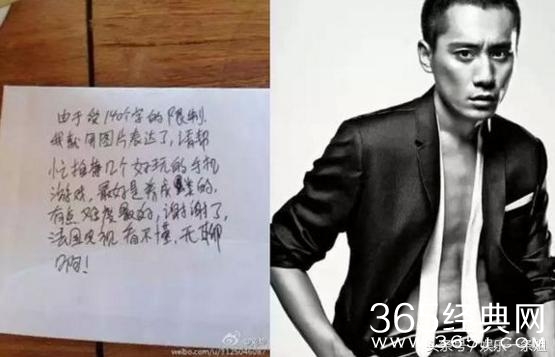 由于受140个字的限制.
我就用图片表达了,请帮
忙推荐几个好玩的手机
游戏,最好是养成类的.
有点难度最好,谢谢了,
法国电视看不懂,无聊
啊!
weibo.com/u/3125046087
365经典网
www.365j.com
头条号/娱乐一条姐